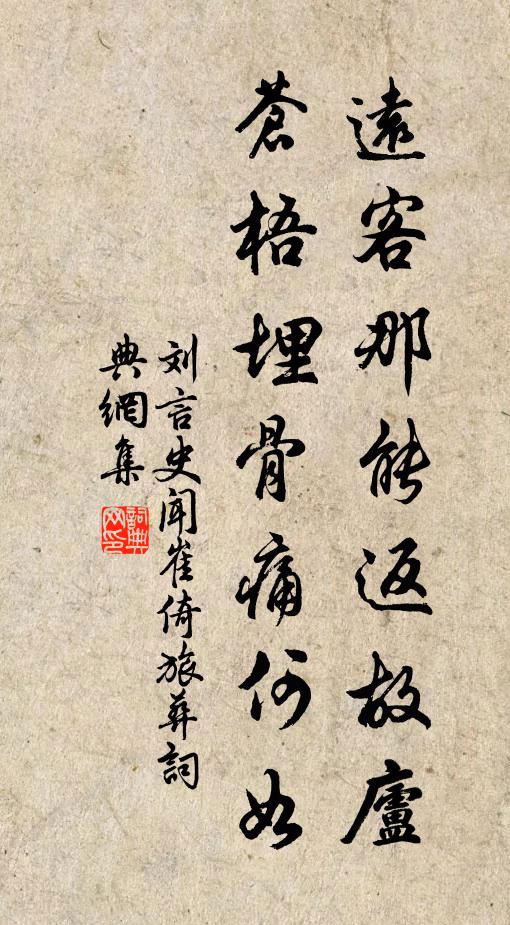 遠客那能返故廬
蒼梧埋骨痛何如
刘言史闻崔倚旅葬詞
典網集
詞典网印